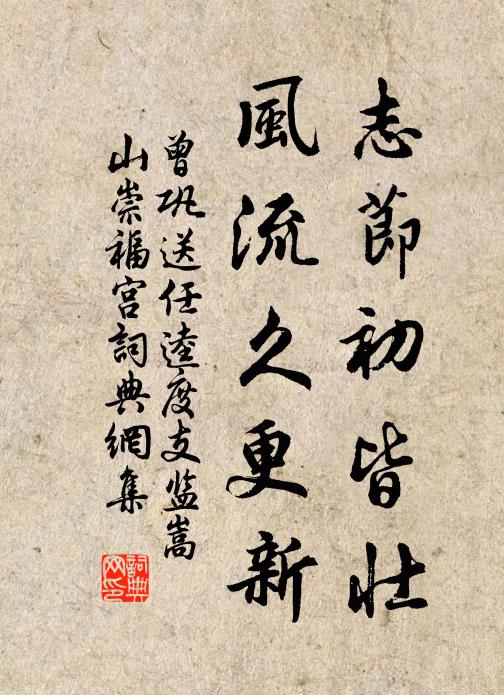 志節初皆壮
風流久更新
曾巩送任逵度支监嵩
山崇福宫詞典網集
詞典
网印